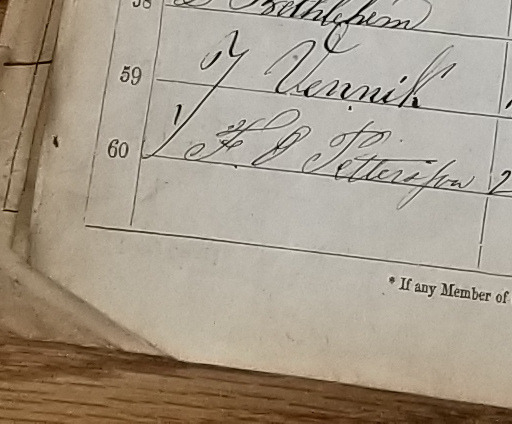 58 Bethlehem
59 Vennik
60 F. O Pettersson 2
* If any Member of